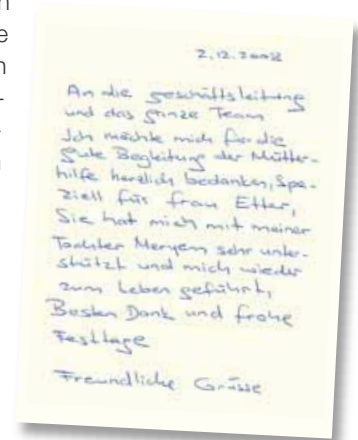 2.12.2008
An die geschäftsleitung
und das ganze Team
Ich möchte mich für die
gute Begleitung der Mütter-
hilfe herzlich bedanken, Spe-
ziell für frau Etter,
Sie hat mich mit meiner
Tochter Meryem sehr unter-
stützt und mich wieder
zum Leben geführt,
Besten Dank und frohe
Festtage
Freundliche Grüsse